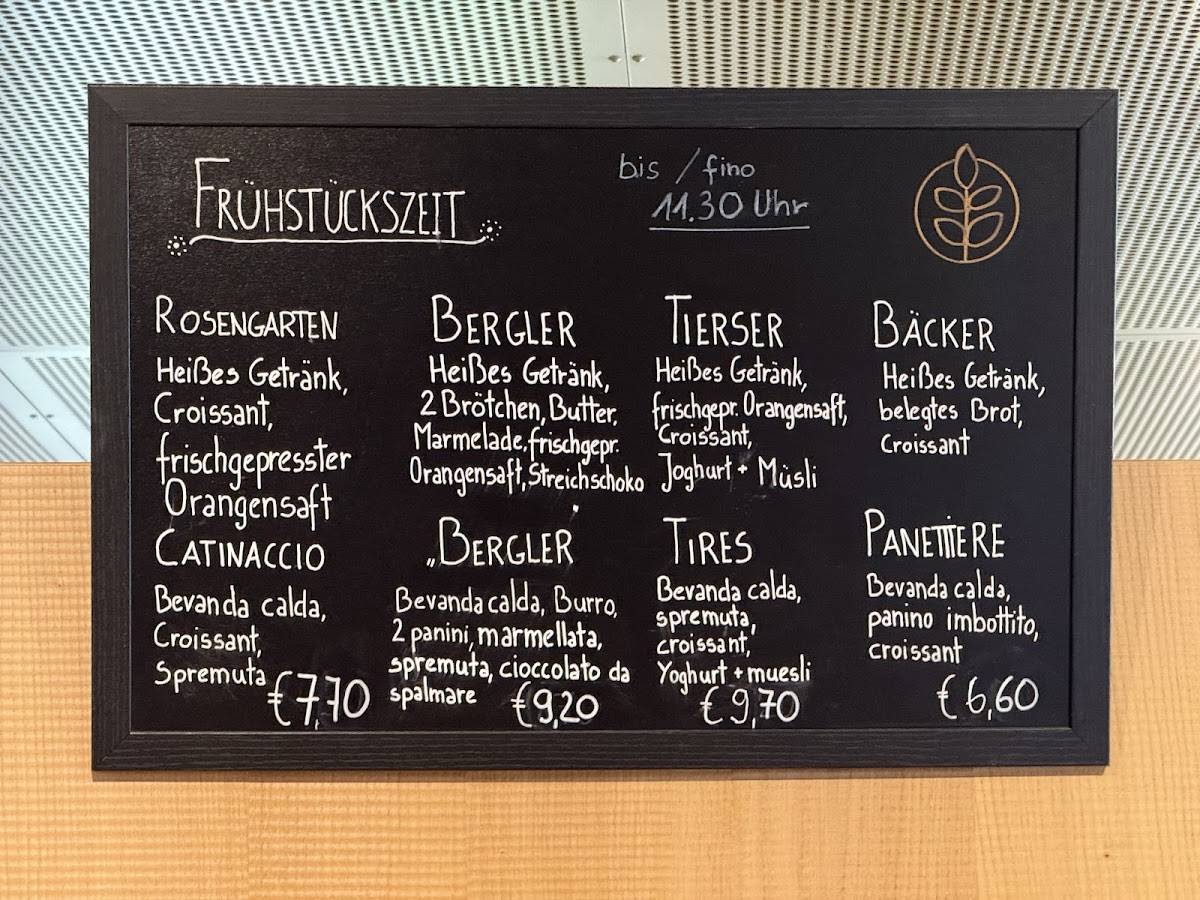 FRÜHSTÜCKSZEIT
bis / fino
11.30 Uhr
ROSENGARTEN
Heißes Getränk,
Croissant,
frischgepresster
Orangensaft
CATINACCIO
Bevanda calda,
Croissant,
Spremuta
€7,70
BERGLER
Heißes Getränk,
2 Brötchen, Butter,
Marmelade, frischgepr.
Orangensaft, Streichschoko
„BERGLER
Bevanda calda, Burro,
2 panini, marmellata,
spremuta, cioccolato da
spalmare
€9,20
TIERSER
Heißes Getränk,
frischgepr. Orangensaft,
Croissant,
Joghurt + Müsli
TIRES
Bevanda calda,
spremuta,
croissant,
Yoghurt + muesli
€9,70
BÄCKER
Heißes Getränk,
belegtes Brot,
Croissant
PANETTIERE
Bevanda calda,
panino imbottito,
croissant
€6,60